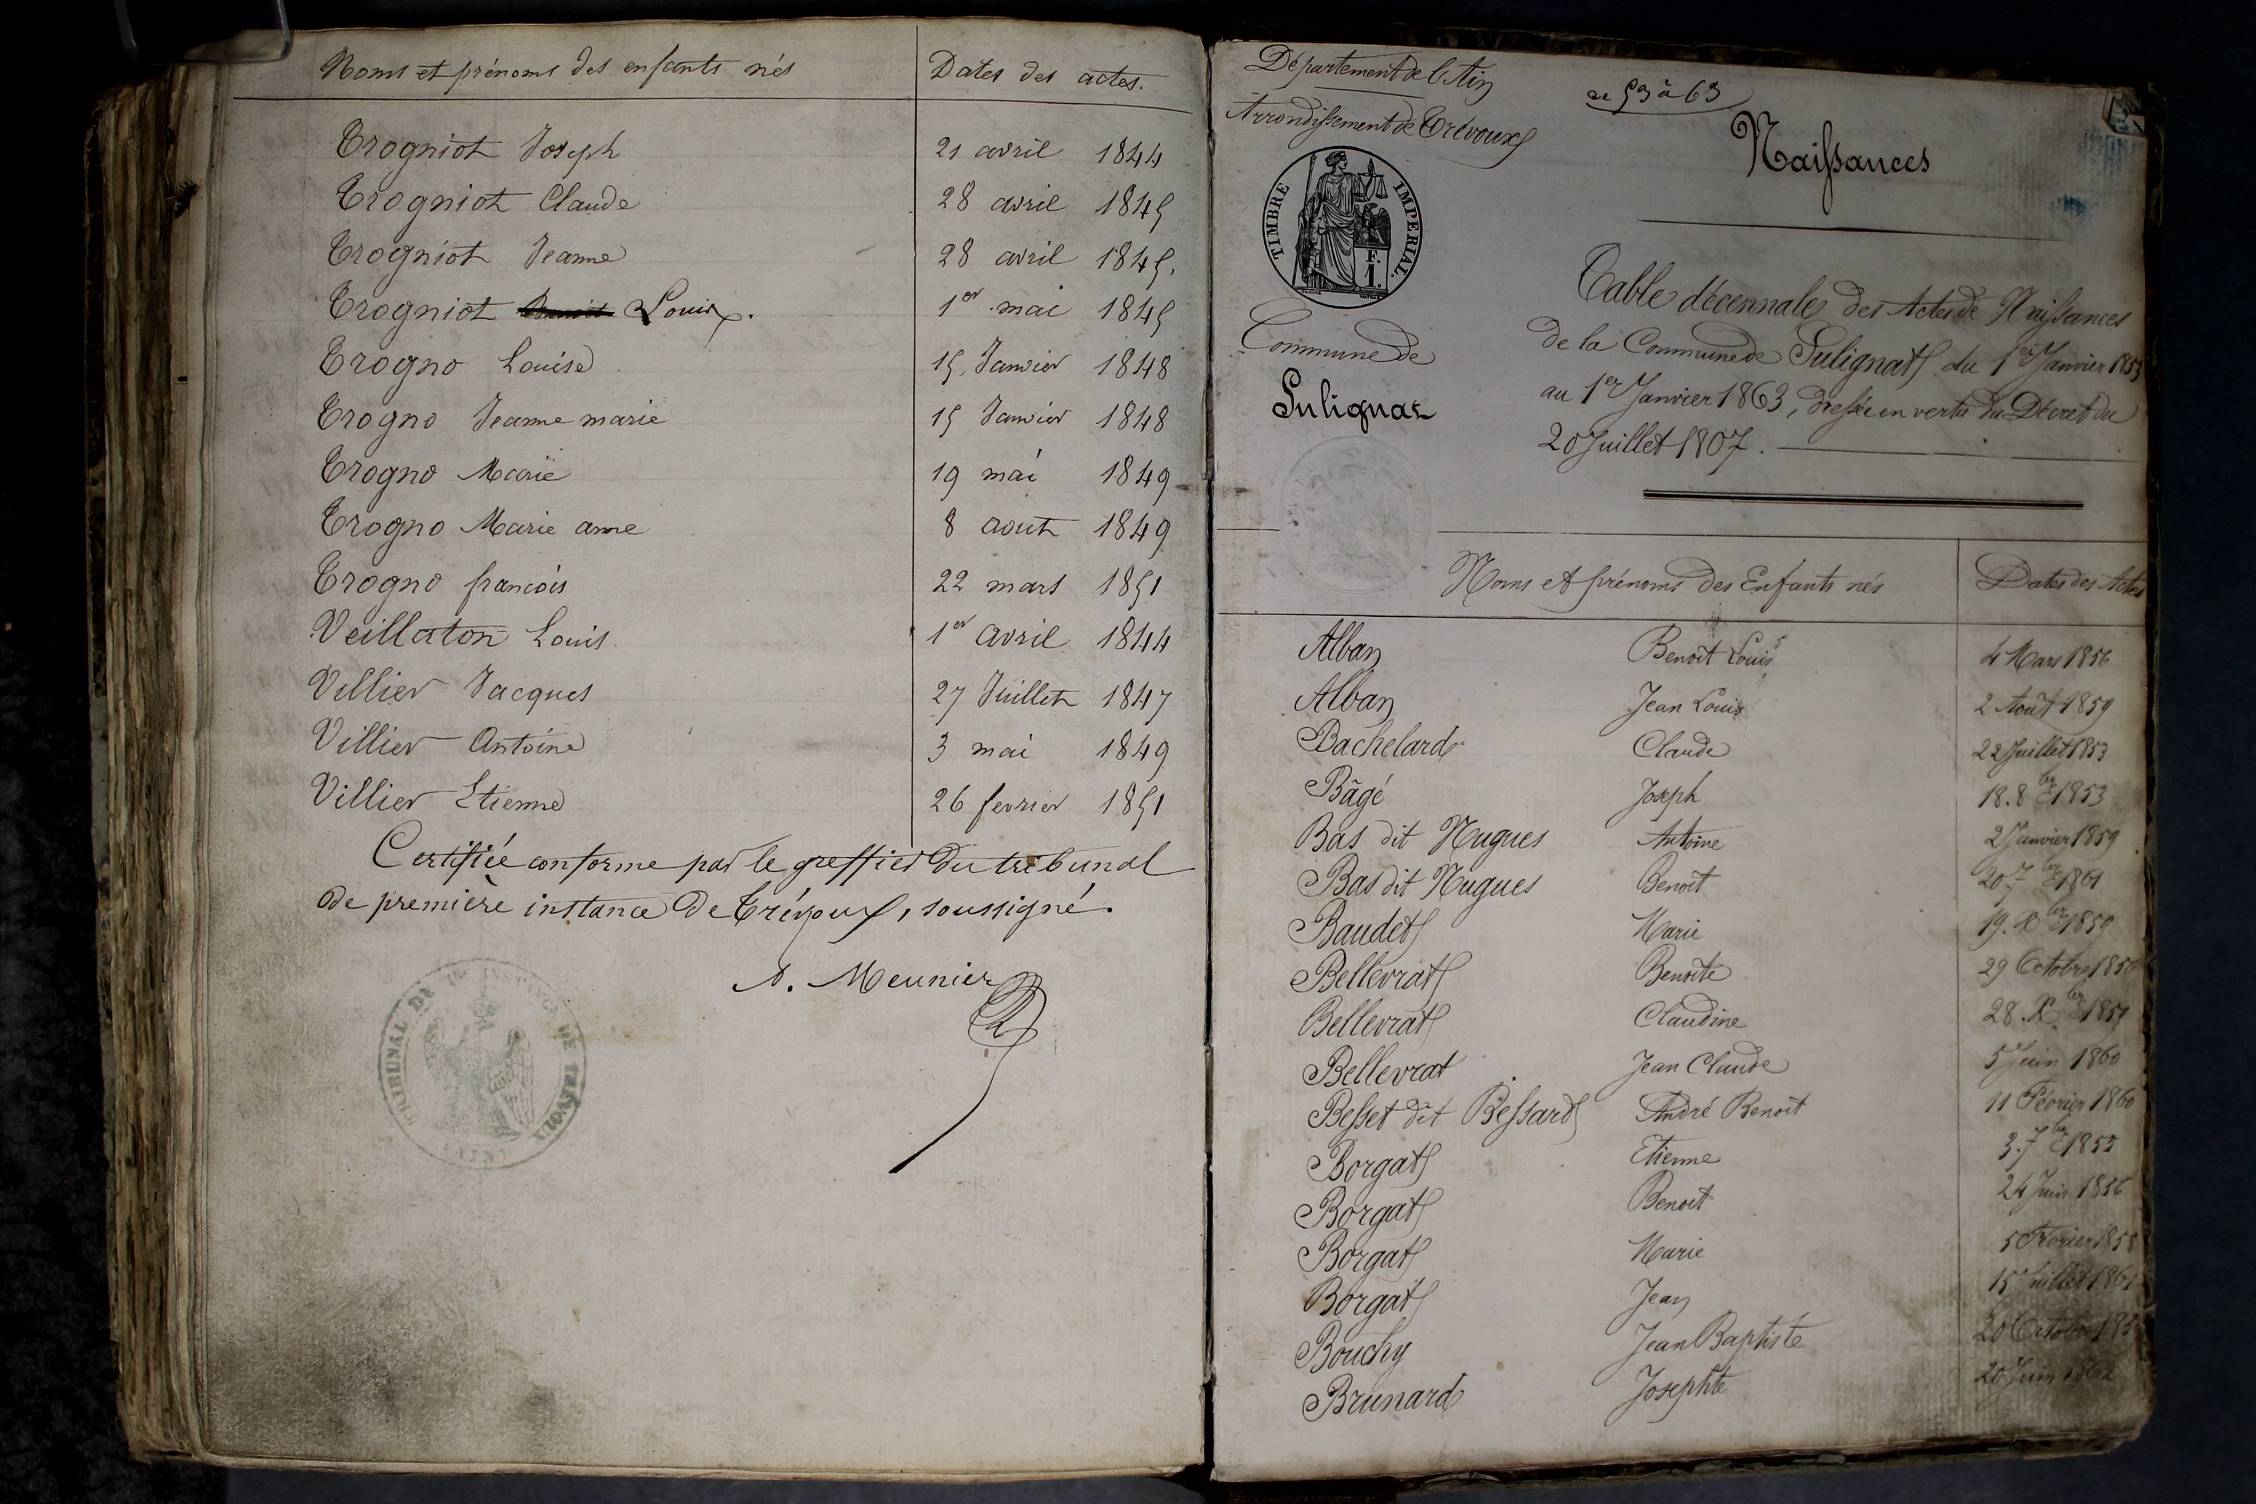 Noms et prénoms des enfants nés Dates des actes.
Trogniot Joseph 21 avril 1844
Trogniot Claude 28 avril 1845
Trogniot Jeanne 28 avril 1845.
Trogniot Louis. 1er mai 1845
Trogno Louise 15 Janvier 1848
Trogno Jeanne marie 15 Janvier 1848
Trogno Marie 19 mai 1849
Trogno Marie anne 8 aout 1849
Trogno francois 22 mars 1851
Veillaton Louis 1er avril 1844
Villier Jacques 27 Juillet 1847
Villier Antoine 3 mai 1849
Villier Etienne 26 fevrier 1851
Certifiée conforme par le greffier du tribunal
de première instance de Trévoux, soussigné.
A. Meunier
TRIBUNAL DE 1re INSTANCE DE TREVOUX
Département de l'Ain
Arrondissement de Trévoux
de 53 à 63
Naissances
TIMBRE IMPERIAL.
1 F.
Commune de
Sulignat
Table décennale des Actes de Naissances
de la Commune de Sulignat du 1er Janvier 1853
au 1er Janvier 1863, dressée en vertu du Décret du
20 Juillet 1807.
Noms et prénoms des Enfants nés Dates des Actes
Alban Benoit Louis 4 Mars 1856
Alban Jean Louis 2 Août 1859
Bachelard Claude 22 Juillet 1853
Bâgé Joseph 18. 8bre 1853
Bas dit Nugues Antoine 2 Janvier 1859
Bas dit Nugues Benoit 20 7bre 1861
Baudet Marie 19. Xbre 1859
Bellevrat Benoîte 29 Octobre
Bellevrat Claudine 28. Xbre
Bellevrat Jean Claude 5 Juin 1860
Besset dit Bessard André Benoit 11 Février 1860
Borgat Etienne 3. 7bre 1855
Borgat Benoit 24 Juin 1856
Borgat Marie 5 Février 1858
Borgat Jean 15 Juillet 1861
Bouchy Jean Baptiste 20 Octobre
Brunard Josephte 20 Juin 1862